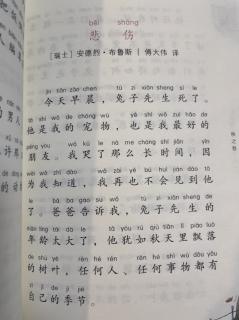 bēi shāng
悲伤
［瑞士］安德烈·布鲁斯｜傅大伟 译
jīn tiān zǎo chen tù zi xiān sheng sǐ le
今天早晨，兔子先生死了。
tā shì wǒ de chǒng wù yě shì wǒ zuì hǎo de
他是我的宠物，也是我最好的
péng you wǒ kū le nà me cháng shí jiān yīn
朋友。我哭了那么长时间，因
wèi wǒ zhī dào wǒ zài yě bú huì jiàn dào tā
为我知道，我再也不会见到他
le bà ba gào su wǒ tù zi xiān sheng de
了。爸爸告诉我，兔子先生的
nián líng tài dà le tā yóu rú qiū tiān lǐ piāo luò
年龄太大了，他犹如秋天里飘落
de shù yè rèn hé rén rèn hé shì wù dōu yǒu
的树叶，任何人、任何事物都有
zì jǐ de jì jié
自己的季节。